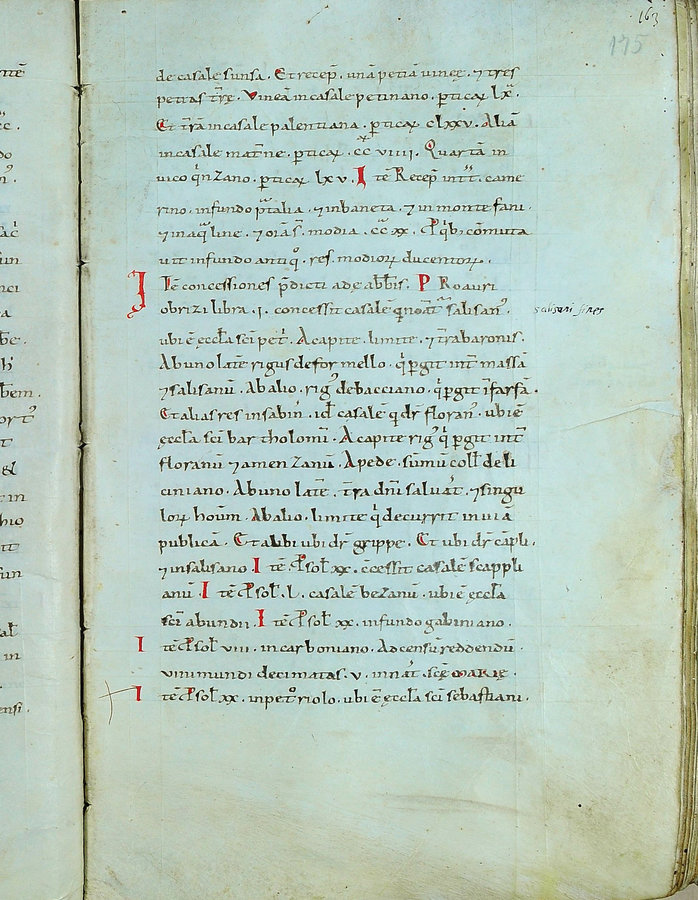 163
175
de casale sunsa. Et recep̄. unā petiā uineę. ⁊ tres
petias tr̄ę. Vineā in casale petinano. ꝑticaꝝ lx̄.
Et tr̄ā in casale palentiana. ꝑticaꝝ clxxv. Aliā
in casale mar̄ne. ꝑticaꝝ. cc viiii. Quartā in
uico q̄nzano. ꝑticaꝝ lxv. Itē Recep̄ int̄. came
rino. in fundo p̄talia. ⁊ in baneta. ⁊ in monte fani.
⁊ in aq̄line. ⁊ oīa s̄. modia. cc xx. P q̇b; cōmuta
uit in fundo antiq̊. res. modioꝝ ducentoꝝ.
Itē concessiones p̄dicti adę abb̄is. PRo auri
obrizi libra. i. concessit casalē q̄ noāt̄ salisan̄.
salisani fines
ubi ē ęccl̄a sc̄i pet̄. A capite. limite. ⁊ tr̄a baronis.
Ab uno latē rigus de formello. q̇ ꝑgit int̄ massā
⁊ salisanū. Ab alio. rig᾿ de bacciano. q̇ ꝑgit ī farfā.
Et alias res in sabin̄. id̄ casalē q̄ dr̄ floran̄. ubi ē
ęccl̄a sc̄i bartholomī. A capite rig᾿ q̇ ꝑgit int̄
floranū ⁊ amenzanū. A pede. summū coll̄ de li
ciniano. Ab uno latē. tr̄a dn̄i saluat̄. ⁊ singu
loꝝ hoūm. Ab alio. limite q̇ decurrit in uiā
publicā. Et alibi ubi dr̄ grippe. Et ubi dr̄ cāpli.
⁊ in salisano. Itē P sol̄ xx. c̄cessit casalē scappli
anū. Itē P sol̄. L. casalē bezanū. ubi ē ęccl̄a
sc̄i abundii. Itē P sol̄ xx. in fundo gabiniano.
Itē P sol̄ viii. in carboniano. Ad censū reddendū
uini mundi decimatas. v. in nat̄. sc̄ę MARIę.
Itē P sol̄ xx. in pet̊riolo. ubi ē ęccl̄a sc̄i sebastiani.